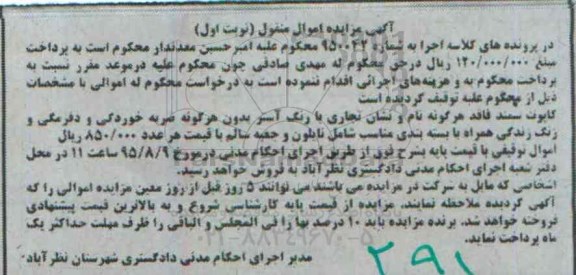 آگهی مزایده اموال منقول (نوبت اول)
در پرونده های کلاسه اجرا به شماره ۹۵۰۰۴۲ محکوم علیه امیرحسین معدندار محکوم است به پرداخت
مبلغ ۱۲۰/۰۰۰/۰۰۰ ریال درحق محکوم له مهدی صادقی چون محکوم علیه درموعد مقرر نسبت به
پرداخت محکوم به و هزینه‌های اجرائی اقدام ننموده است به درخواست محکوم له اموالی با مشخصات
ذیل از محکوم علیه توقیف گردیده است
کاپوت سمند فاقد هرگونه نام و نشان تجاری با رنگ آستر بدون هرگونه ضربه خوردگی و دفرمگی و
زنگ زدگی همراه با بسته بندی مناسب شامل نایلون و جعبه سالم با قیمت هر عدد ۸۵۰/۰۰۰ ریال
اموال توقیفی با قیمت پایه بشرح فوق از طریق اجرای احکام مدنی درمورخ ۹۵/۸/۹ ساعت ۱۱ در محل
دفتر شعبه اجرای احکام مدنی دادگستری نظرآباد به فروش خواهد رسید.
اشخاصی که مایل به شرکت در مزایده می باشند می توانند ۵ روز قبل از روز معین مزایده اموالی را که
آگهی گردیده ملاحظه نمایند. مزایده از قیمت پایه کارشناسی شروع و به بالاترین قیمت پیشنهادی
فروخته خواهد شد. برنده مزایده باید ۱۰ درصد بها را فی المجلس و الباقی را ظرف مهلت حداکثر یک
ماه پرداخت نماید.
مدیر اجرای احکام مدنی دادگستری شهرستان نظرآباد
۲۹۱
۰۲۱-۸۸۳۴۹۶۷۰-۵